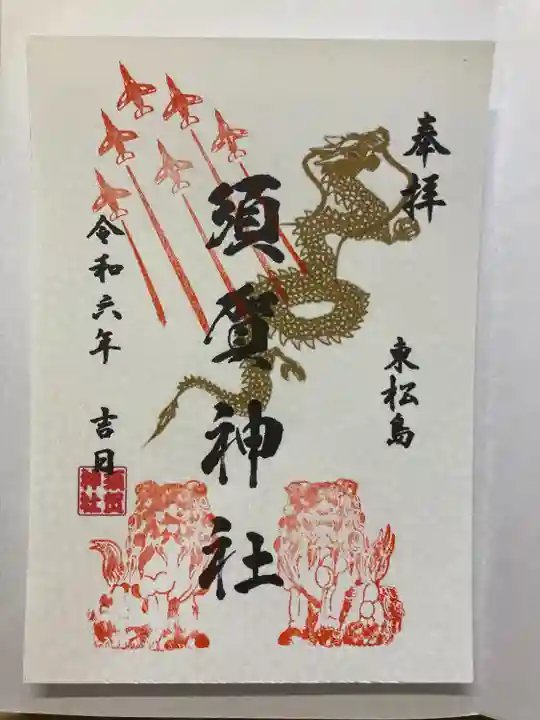 奉拝
東松島
須賀神社
令和六年 吉日
須賀神社